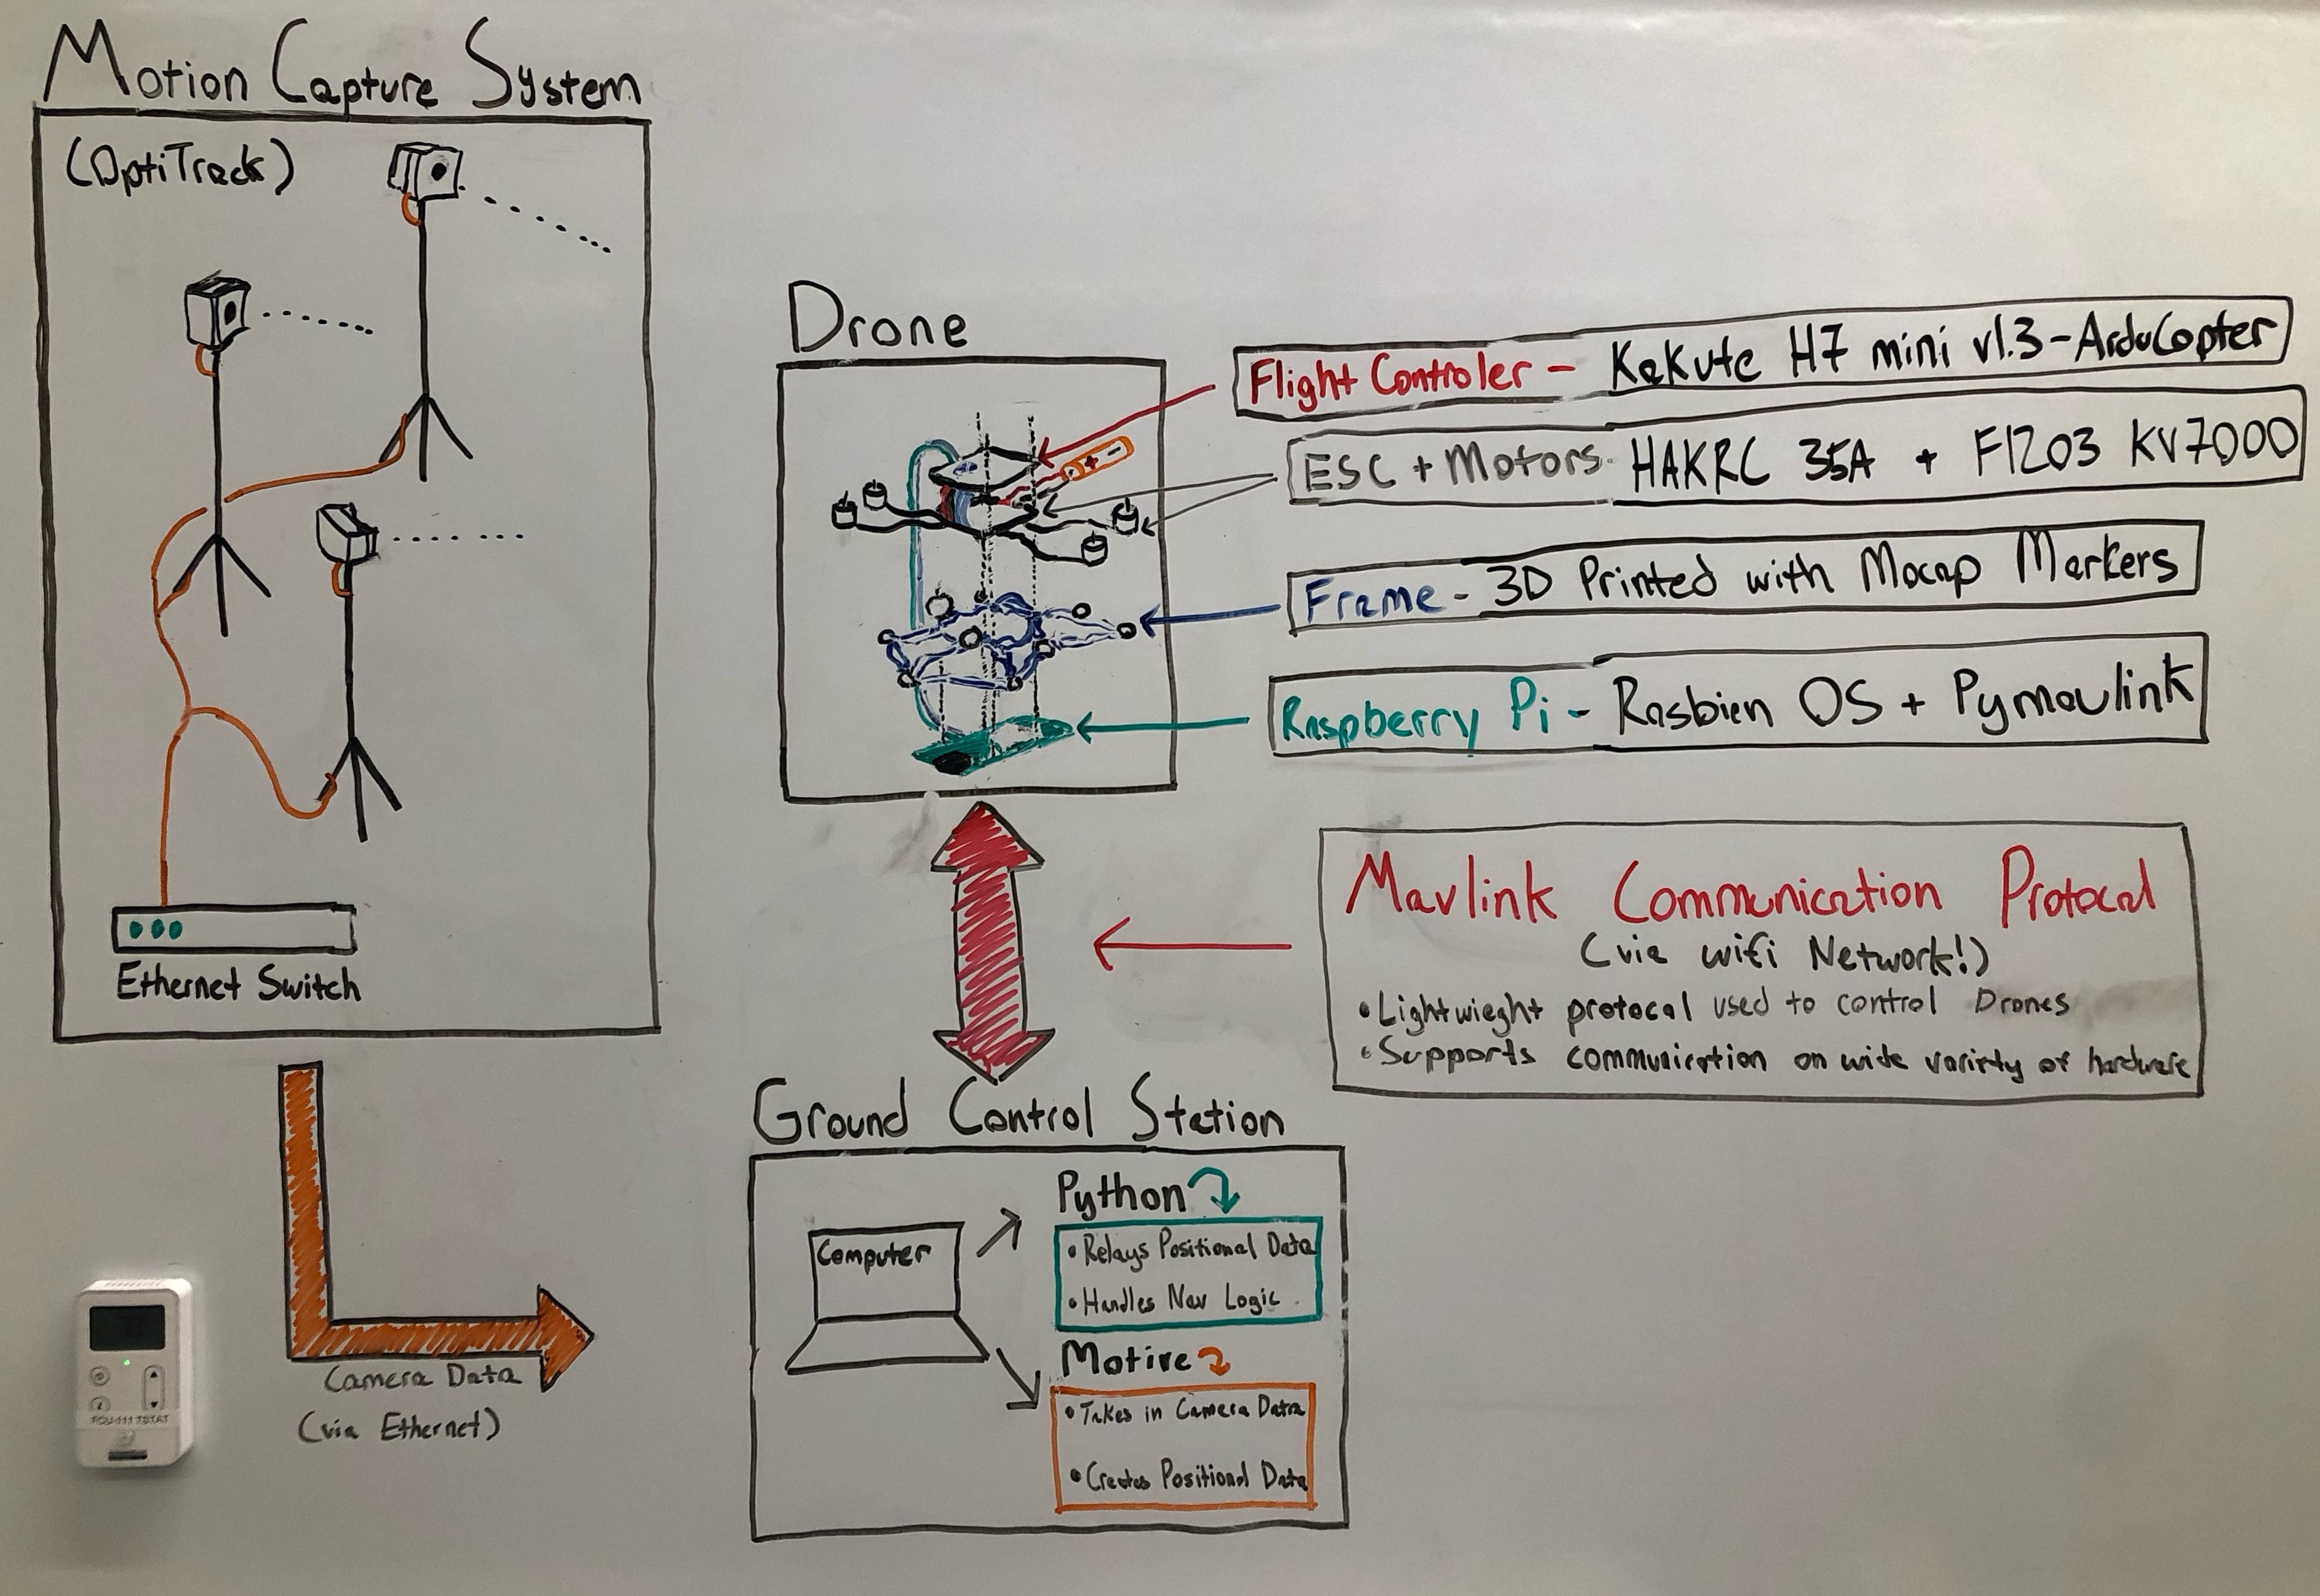 Motion Capture System
(OptiTrack)
Ethernet Switch
Camera Data
(via Ethernet)
Drone
Flight Controler - Kakute H7 mini v1.3 - ArduCopter
ESC + Motors - HAKRC 35A + F1203 KV7000
Frame - 3D Printed with Mocap Markers
Raspberry Pi - Rasbian OS + Pymavlink
Mavlink Communication Protocal
(via wifi Network!)
• Lightwieght protocal used to control Drones
• Supports communication on wide variety of hardware
Ground Control Station
Computer
Python
• Relays Positional Data
• Handles Nav Logic
Motive
• Takes in Camera Data
• Creates Positional Data
+ -